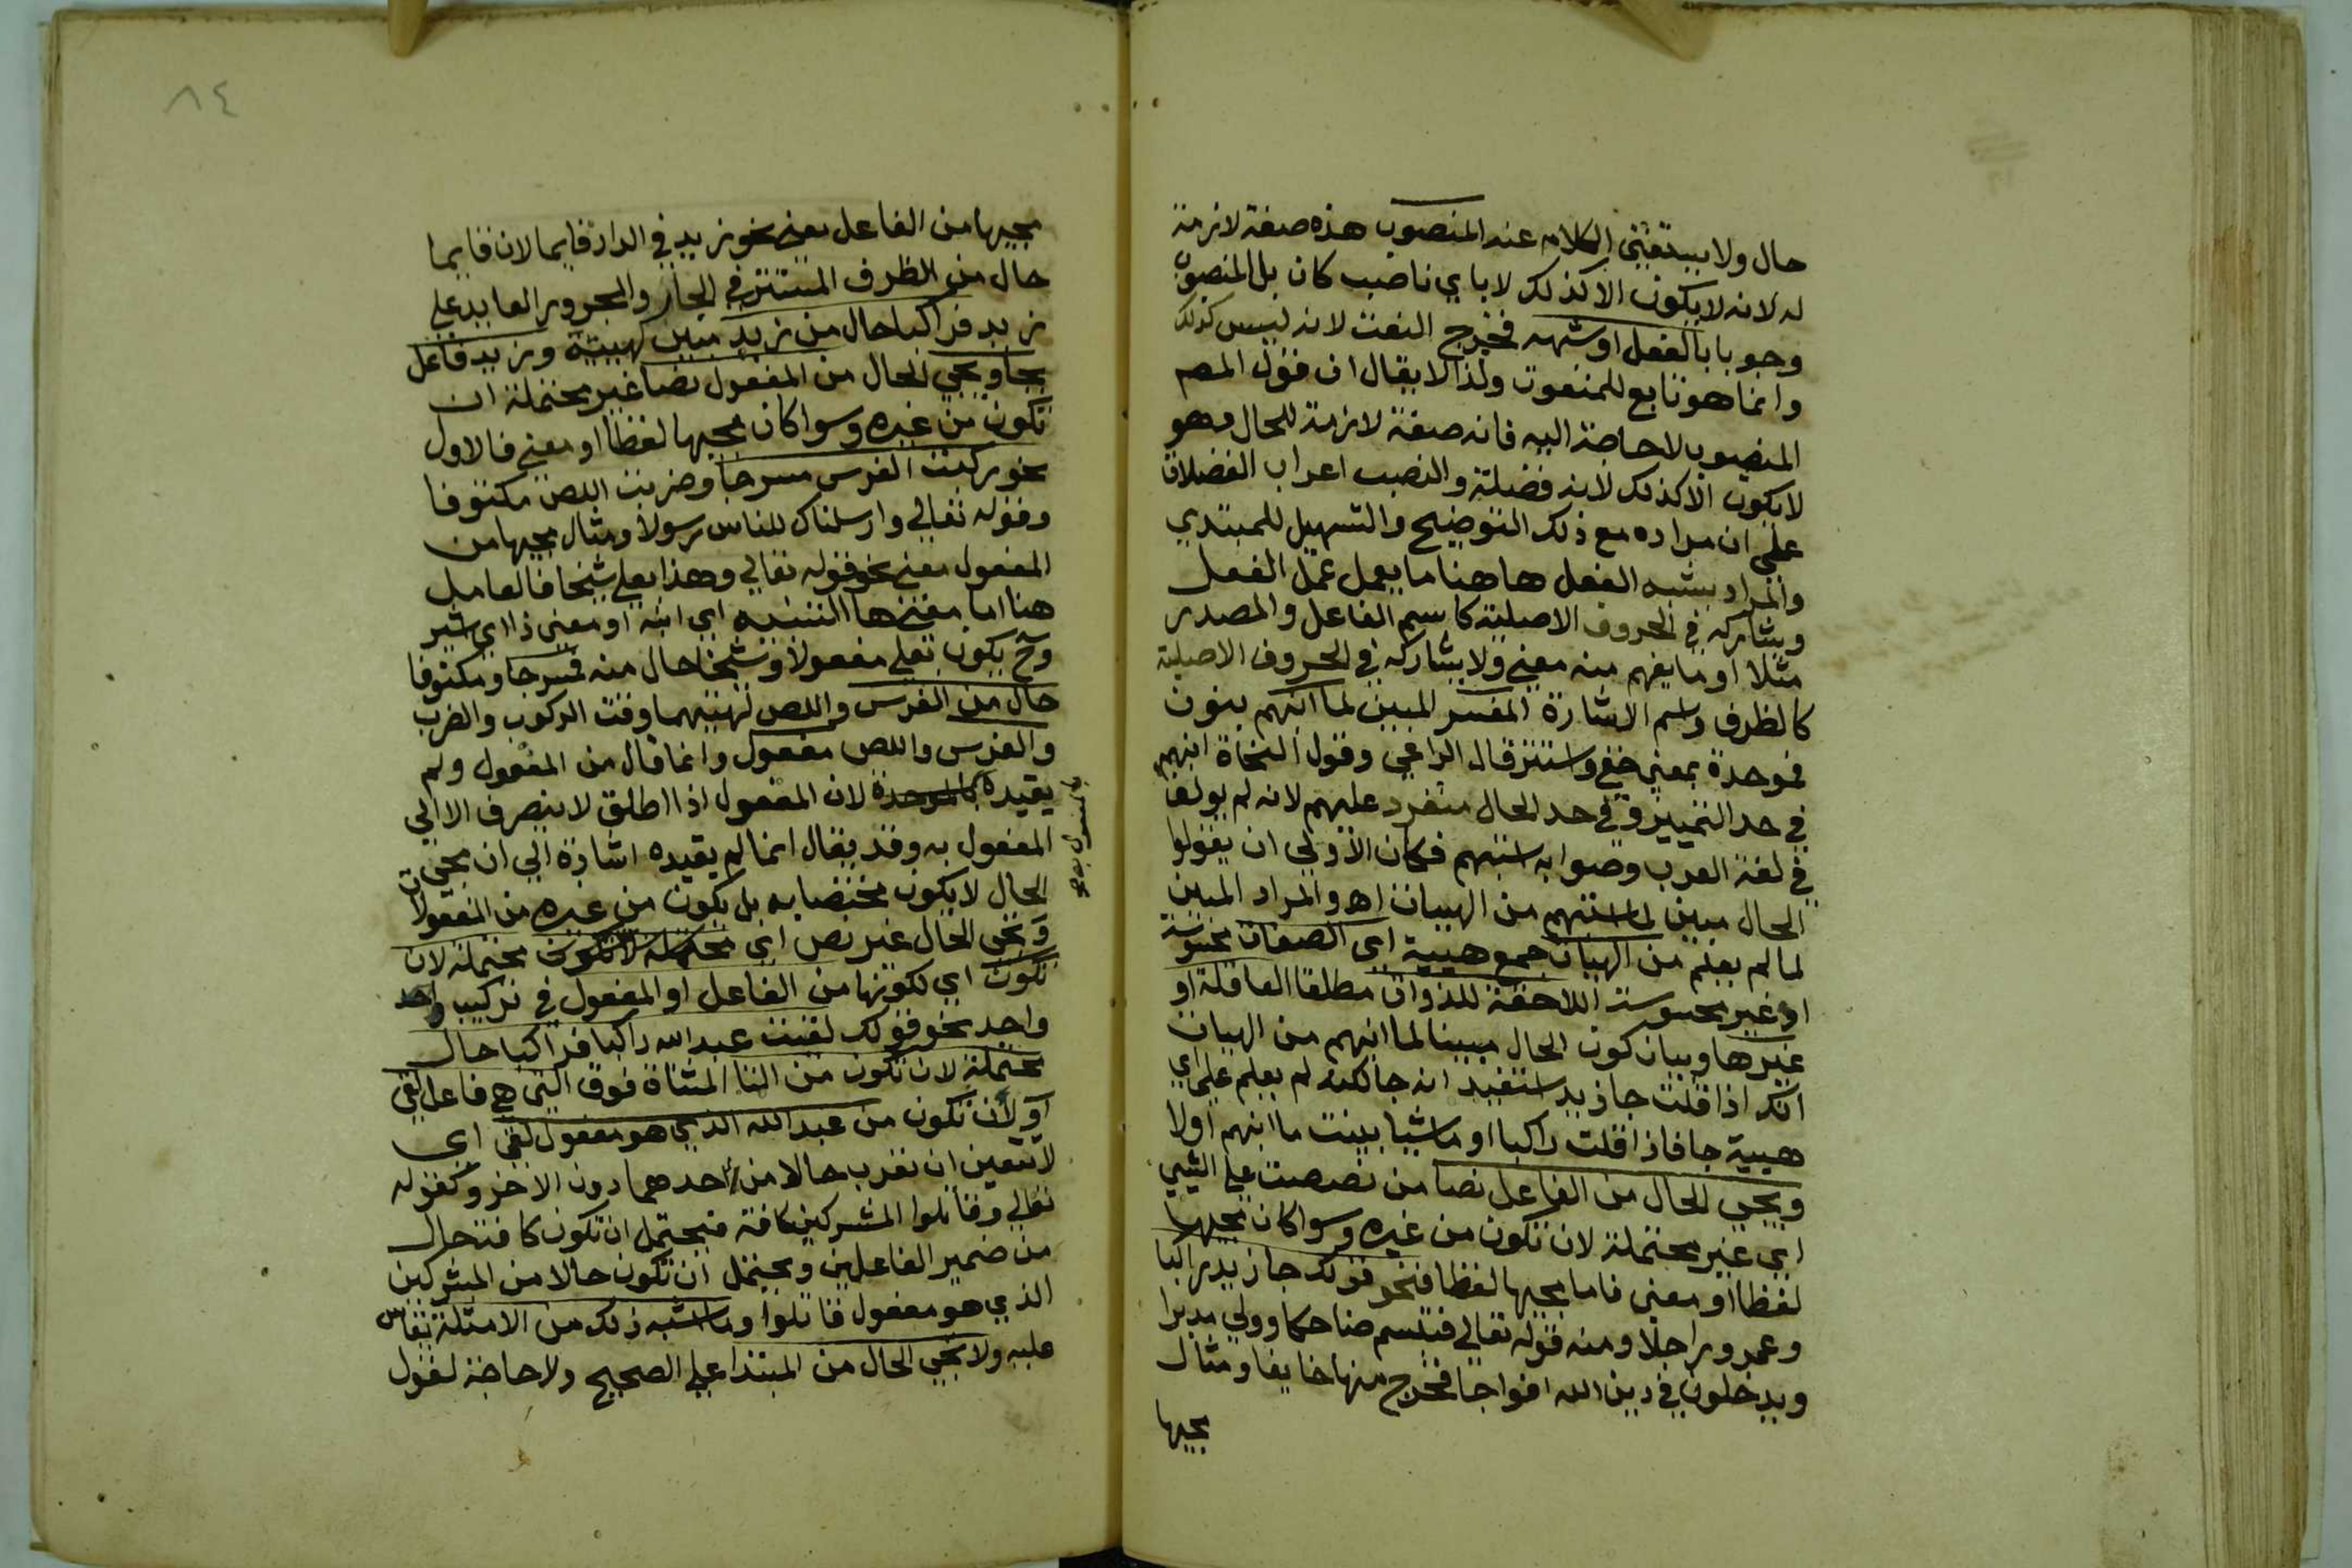 حال ولا يستغنى الكلام عنه المنصوب هذه صفة لازمة
له لانه لا يكون الا كذلك لا باي ناصب كان بل المنصوب
وجوبا بالفعل او شبهه فخرج النعت لانه ليس كذلك
وانما هو تابع للمنعوت ولذا لا يقال ان قول المصـ
المنصوب لا حاجة اليه فانه صفة لازمة للحال وهو
لا يكون الا كذلك لانه فضلة والنصب اعراب الفضلات
على ان مراده مع ذلك التوضيح والتسهيل للمبتدي
والمراد بشبه الفعل ها هنا ما يعمل عمل الفعل
ويشاركه في الحروف الاصلية كاسم الفاعل والمصدر
مثلا او ما يفهم منه معنى ولا يشاركه في الحروف الاصلية
كالظرف واسم الاشارة المفسر المبين لما انبهم بنون
فموحدة بمعنى خفي واستتر قال الراعي وقول النحاة انبهم
في حد التمييز وفي حد الحال منفرد عليهم لانه لم
في لغة العرب وصوابه استبهم فكان الاولى ان يقولوا
الحال مبين لما استبهم من الهيات اه والمراد المبين
لما لم يعلم من الهيات جمع هيية اي الصفات محسوسة
او غير محسوسة اللاحقة للذوات مطلقا العاقلة او
غيرها وبيان كون الحال مبينا لما انبهم من الهيات
انك اذا قلت جا زيد استفيد انه جا لكنه لم يعلم على اي
هيية جا فاذا قلت راكبا او ماشيا بينت ما انبهم اولا
ويجي الحال من الفاعل نصا من نصصت على الشي
اي غير محتملة لان تكون من غيره وسوا كان مجيها
لفظا او معنى فاما مجيها لفظا فنحو قولك جا زيد راكبا
وعمرو راجلا ومنه قوله تعالى فتبسم ضاحكا وولى مدبرا
ويدخلون في دين الله افواجا فخرج منها خايفا ومثال
مجيها
٨٤
مجيها من الفاعل معنى نحو زيد في الدار قايما لان قايما
حال من الظرف المستتر في الجار والمجرور العايد على
زيد فراكبا حال من زيد مبين لهييته وزيد فاعل
بجا ويجي الحال من المفعول نصا غير محتملة ان
تكون من غيره وسوا كان مجيها لفظا او معنى فالاول
نحو ركبت الفرس مسرجا وضربت اللص مكتوفا
وقوله تعالى وارسلناك للناس رسولا ومثال مجيها من
المفعول معنى نحو قوله تعالى وهذا بعلي شيخا فالعامل
هنا اما معنى ها التنبيه اي انبه او معنى ذا اي اشير
وح يكون بعلي مفعولا وشيخا حال منه فمسرجا ومكتوفا
حال من الفرس واللص لهييتهما وقت الركوب والضرب
والفرس واللص مفعول وانما قال من المفعول ولم
يقيده بالموحدة لان المفعول اذا اطلق لا ينصرف الا الى
المفعول به وقد يقال انما لم يقيده اشارة الى ان مجي
الحال لا يكون مختصا به بل يكون من غيره من المفعولات
ويجي الحال غير نص اي محتملة لان تكون محتملة لان
تكون اي لكونها من الفاعل او المفعول في تركيب واحد
واحد نحو قولك لقيت عبد الله راكبا فراكبا حال
محتملة لان تكون من التا المثناة فوق التي هي فاعل لقي
او لان تكون من عبد الله الذي هو مفعول لقي اي
لا يتعين ان تعرب حالا من احدهما دون الاخر وكقوله
تعالى وقاتلوا المشركين كافة فيحتمل ان تكون كافة حال
من ضمير الفاعلين ويحتمل ان تكون حالا من المشركين
الذي هو مفعول قاتلوا وما اشبه ذلك من الامثلة تقاس
عليه ولا يجي الحال من المبتدا على الصحيح ولا حاجة لقول